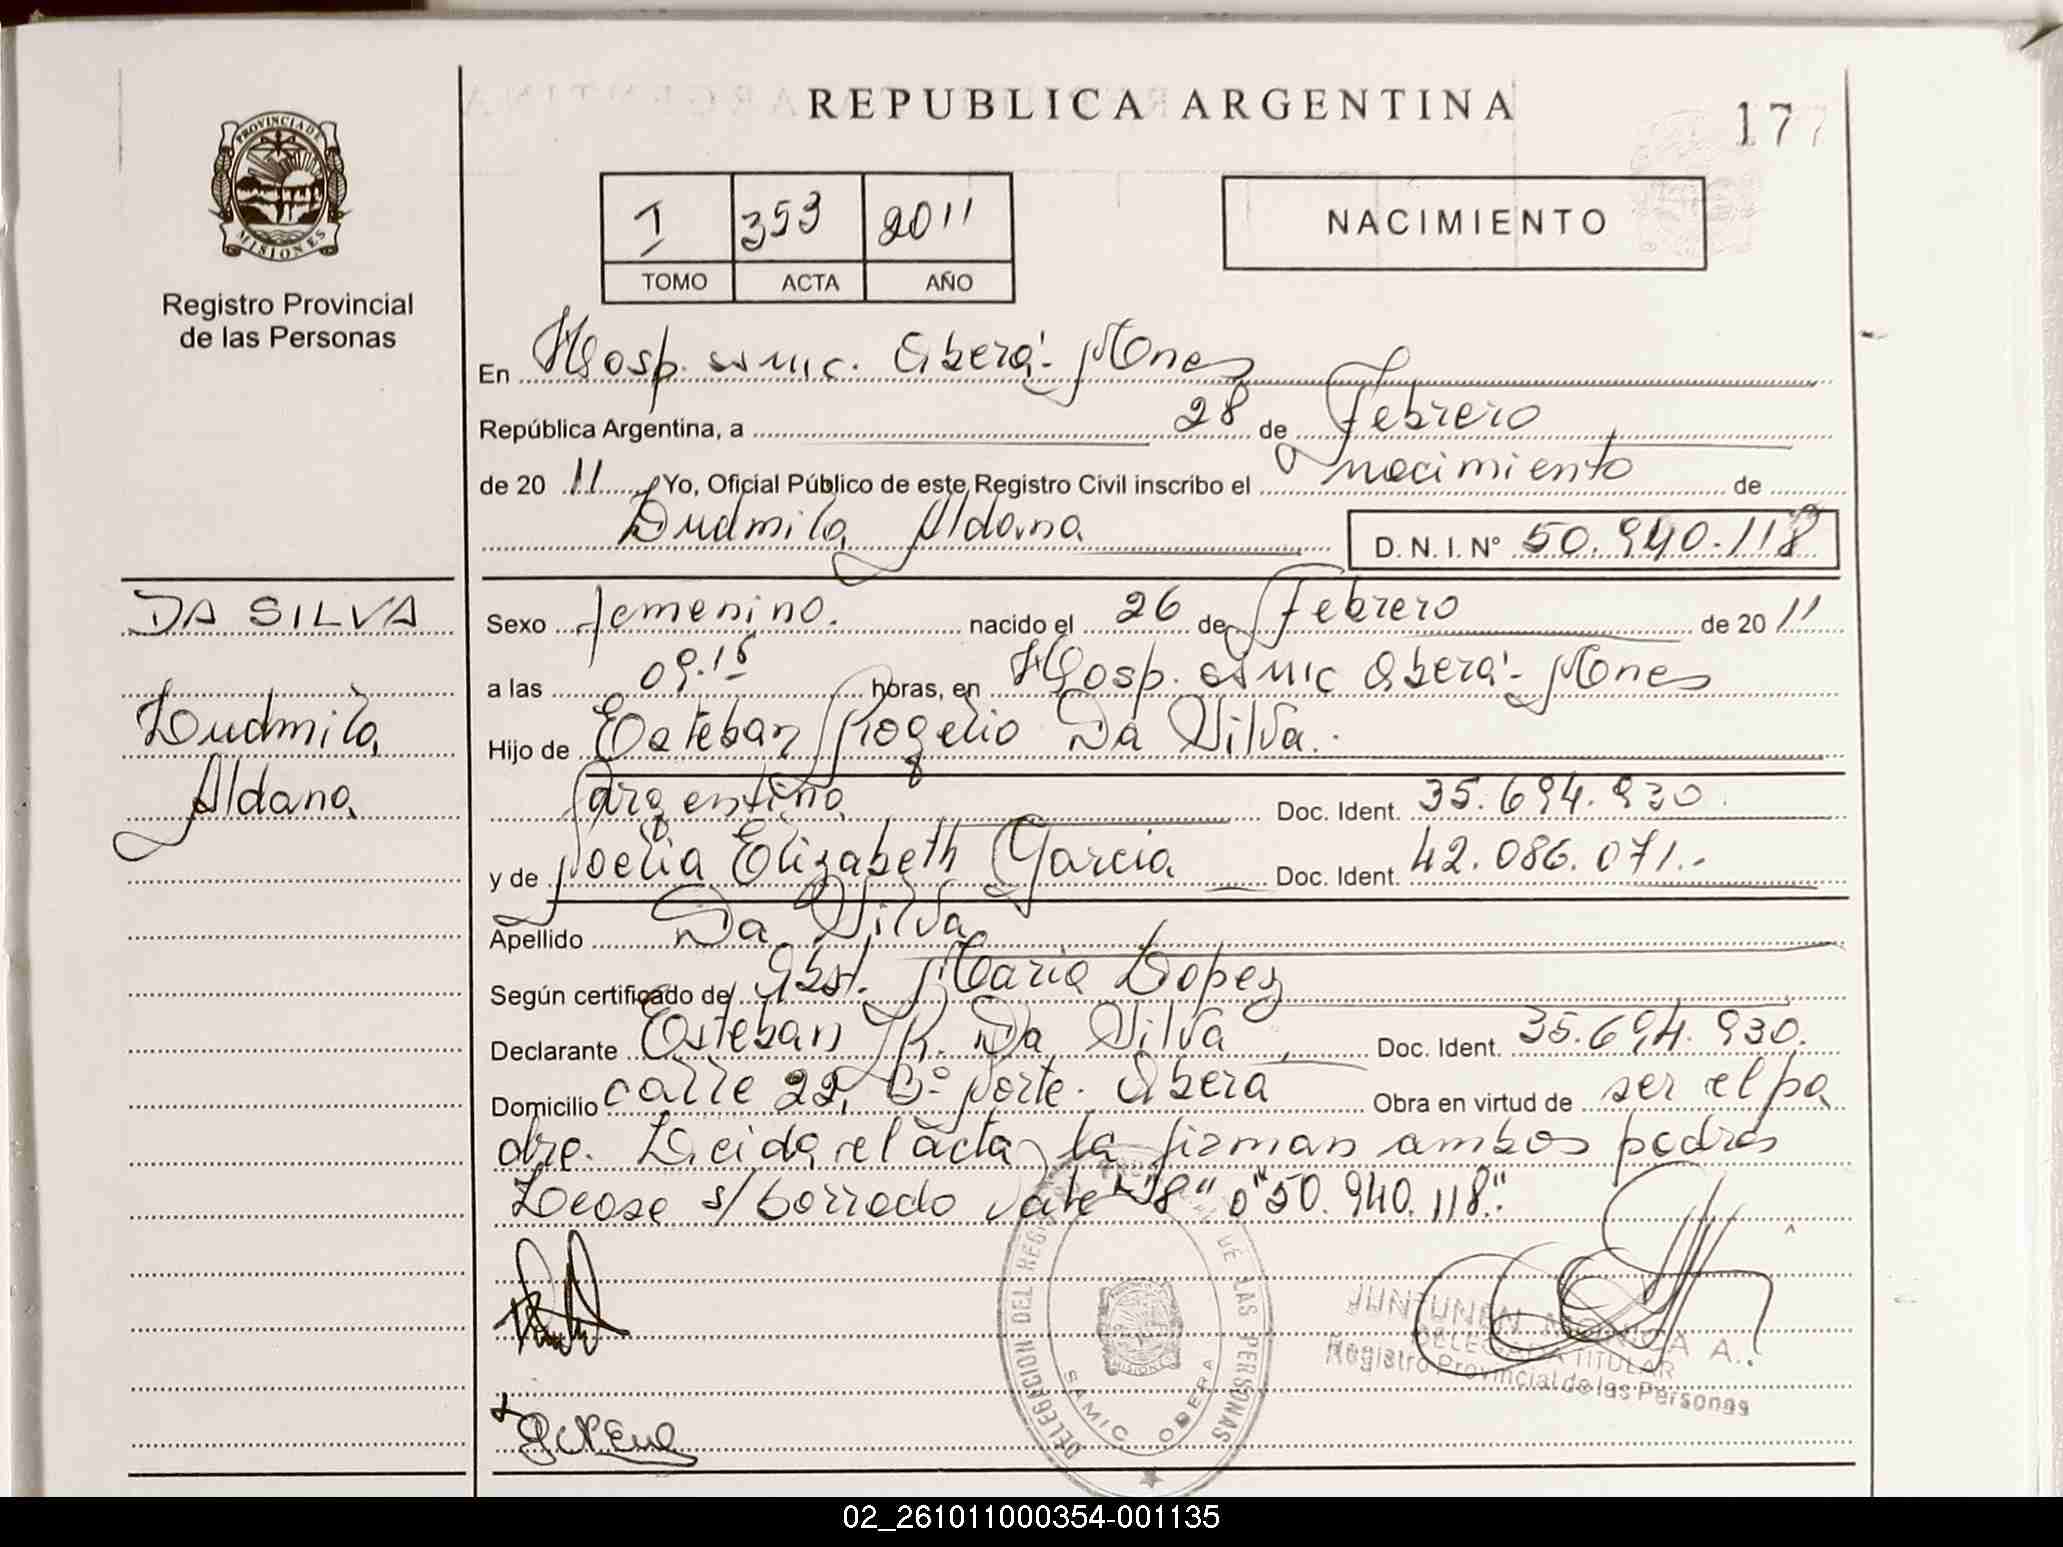 REPUBLICA ARGENTINA
177
PROVINCIA DE
MISIONES
Registro Provincial
de las Personas
I 353 2011
TOMO ACTA AÑO
NACIMIENTO
En Hosp. samic. Oberá - Mnes
República Argentina, a 28 de Febrero
de 20 11 Yo, Oficial Público de este Registro Civil inscribo el nacimiento de
Ludmila Aldana D. N. I. Nº 50.940.118
DA SILVA
Ludmila
Aldana
Sexo femenino. nacido el 26 de Febrero de 20 11
a las 09.15 horas, en Hosp. samic Oberá - Mnes
Hijo de Esteban Rogelio Da Silva.
argentino Doc. Ident. 35.694.930.
y de Noelia Elizabeth Garcia Doc. Ident. 42.086.071.-
Apellido Da Silva
Según certificado de Obst. Maria Lopez
Declarante Esteban R. Da Silva Doc. Ident. 35.694.930.
Domicilio calle 22, Bº Norte. Obera Obra en virtud de ser el pa
dre. Leida el acta la firman ambos padres
Lease s/ borrado vale "8" o "50.940.118".
DELEGACION DEL REGISTRO DE LAS PERSONAS
MISIONES
SAMIC OBERA
A.
DELEGADA TITULAR
Registro Provincial de las Personas
02_261011000354-001135